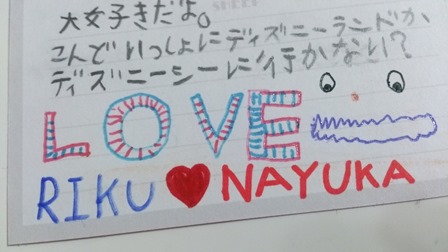 大女子きだよ。
こんどいっしょにディズニーランドか
ディズニーシーに行かない?
LOVE
RIKU ❤ NAYUKA